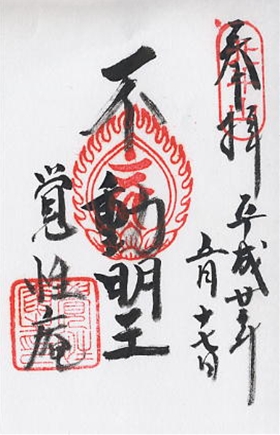 奉拝
平成廿年
五月十七日
不動明王
覚性庵